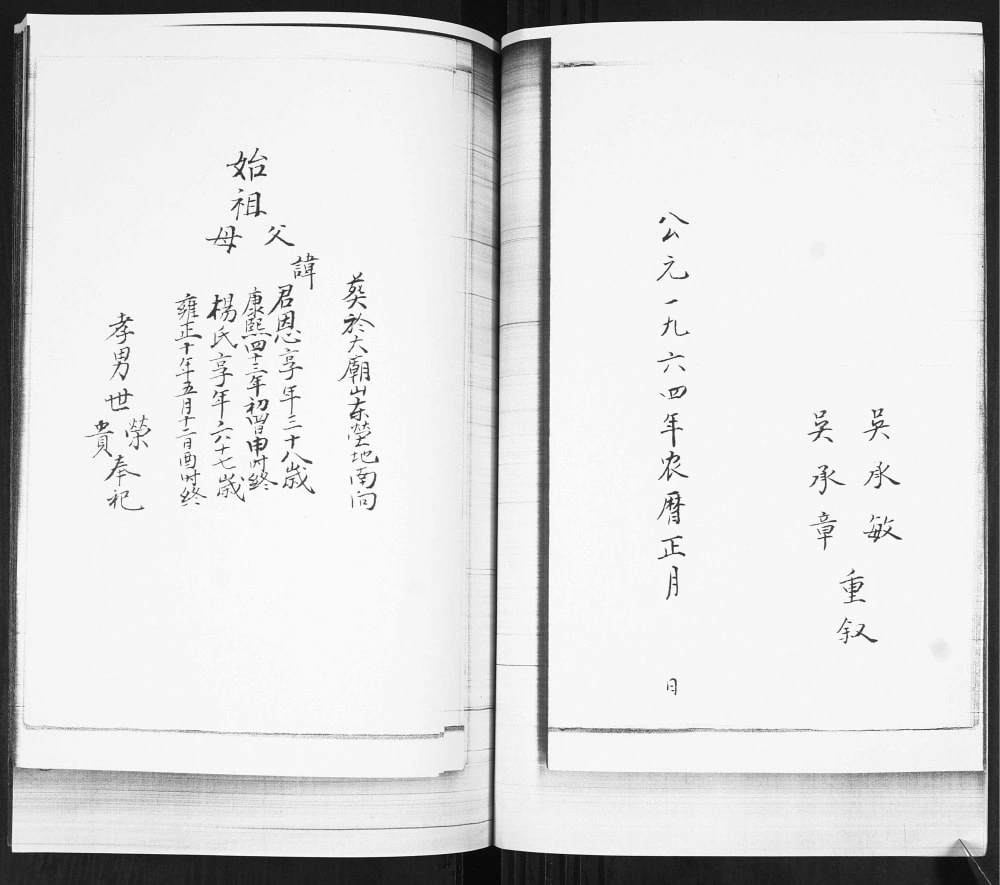 吳承敏
吳承章
重叙
公元一九六四年农曆正月 日
葬於大廟山东塋地南向
始祖
父
母
諱
君恩享年三十八歳
康熙四十三年初四日申时终
楊氏享年六十七歳
雍正十年五月十二日酉时终
孝男世
榮
貴
奉祀